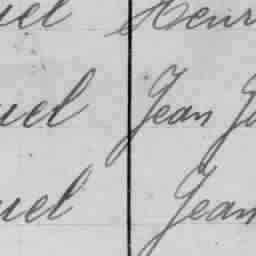 uel Henr
uel Jean Ja
uel Jean